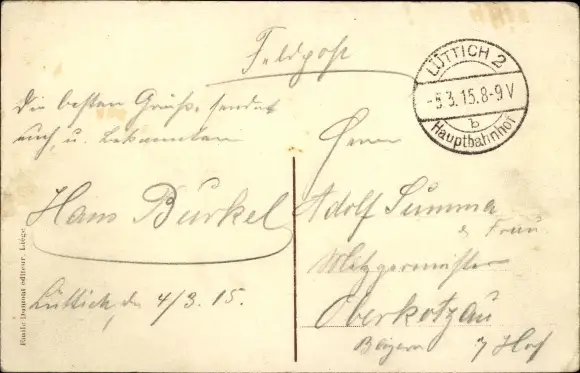 Feldpost
LÜTTICH 2
-5.3.15.8-9V
b
Hauptbahnhof
Die besten Grüße, sendet
euch, u. Bekannten
Hans Bürkel
Lüttich, d. 4/3. 15.
Herrn
Adolf Summa
& Frau
Metzgermeister
Oberkotzau
Bayern Hof
Emile Dumont editeur. Liége